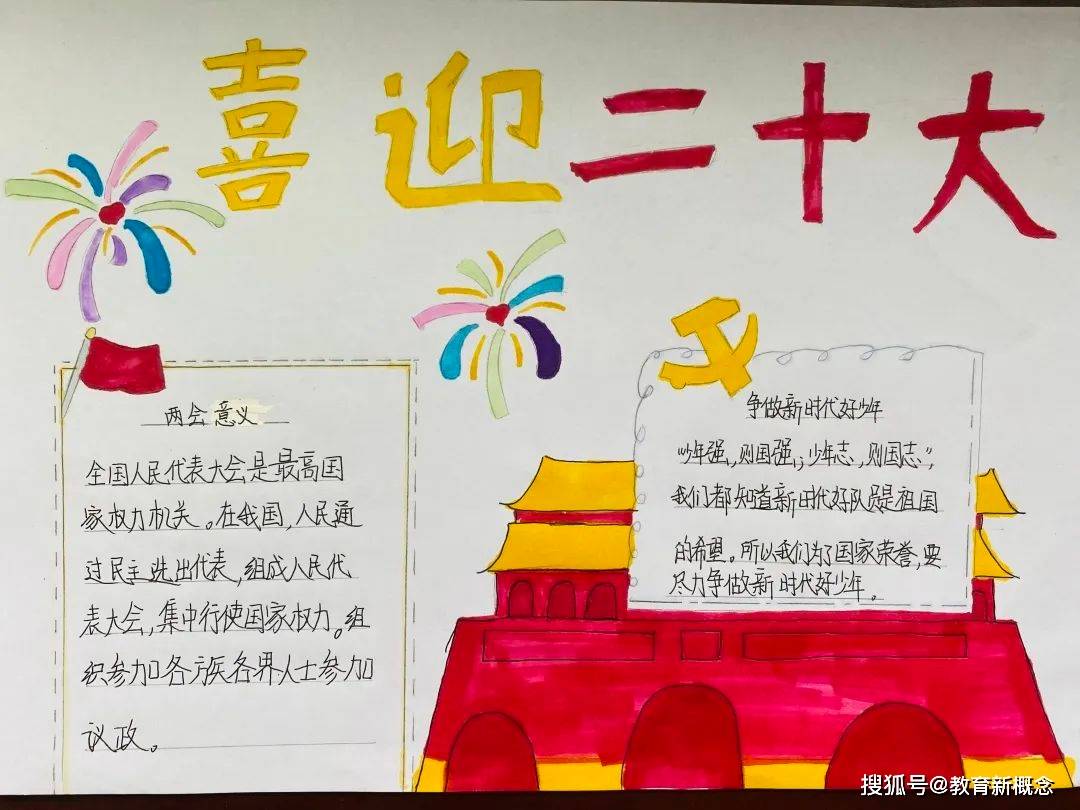 喜迎二十大
两会意义
全国人民代表大会是最高国
家权力机关。在我国,人民通
过民主选出代表,组成人民代
表大会,集中行使国家权力。组
织参加各族各界人士参加
议政。
争做新时代好少年
“少年强,则国强;少年志,则国志”,
我们都知道新时代好队员是祖国
的希望。所以我们为了国家荣誉,要
尽力争做新时代好少年。
搜狐号@教育新概念